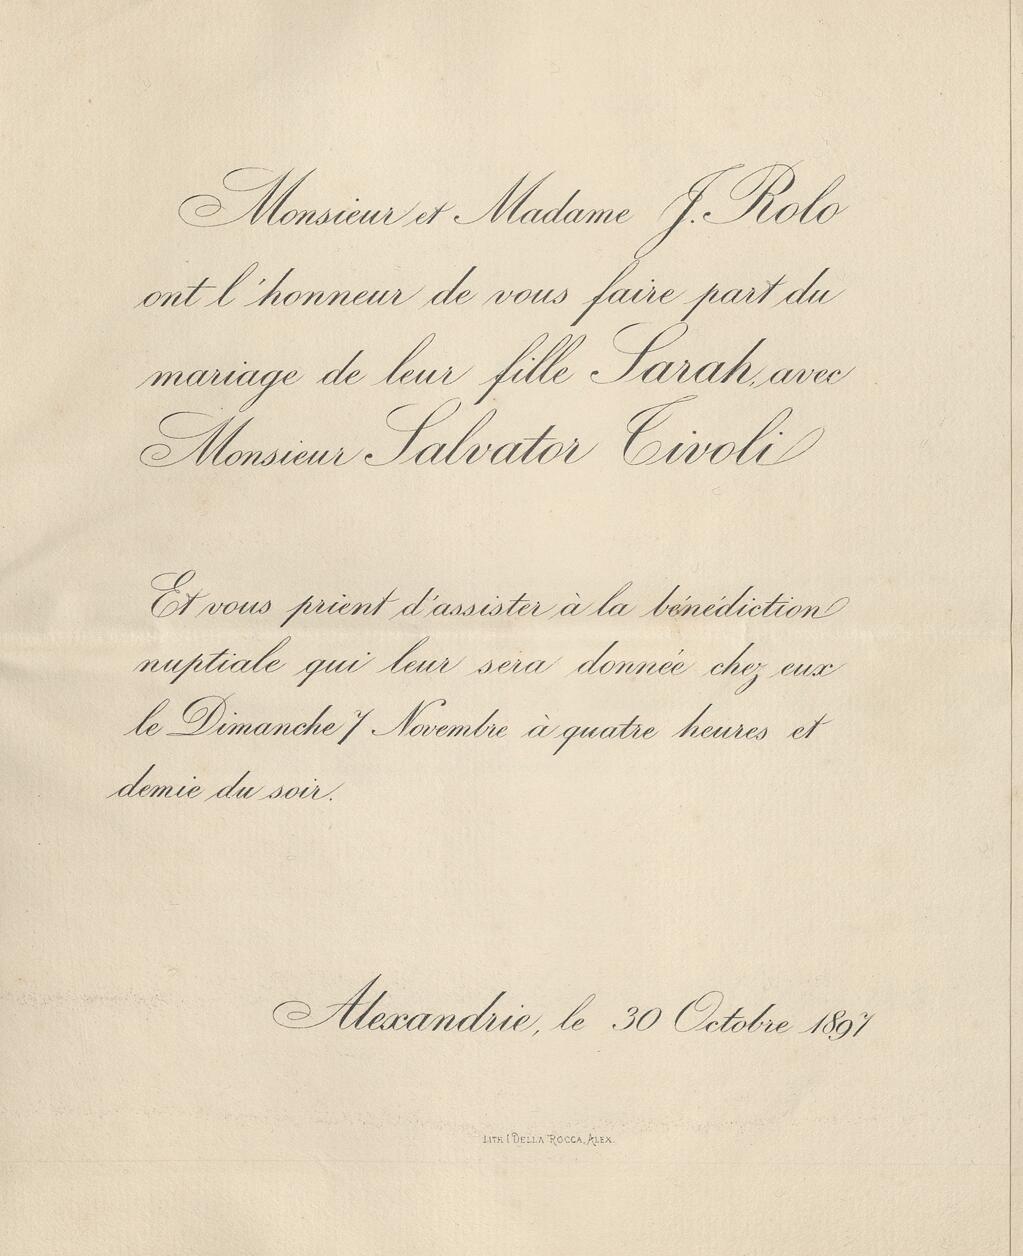 Monsieur et Madame J. Rolo
ont l'honneur de vous faire part du
mariage de leur fille Sarah, avec
Monsieur Salvator Tivoli
Et vous prient d'assister à la bénédiction
nuptiale qui leur sera donnée chez eux
le Dimanche 7 Novembre à quatre heures et
demie du soir.
Alexandrie, le 30 Octobre 1897
LITH. I. DELLA ROCCA, ALEX.